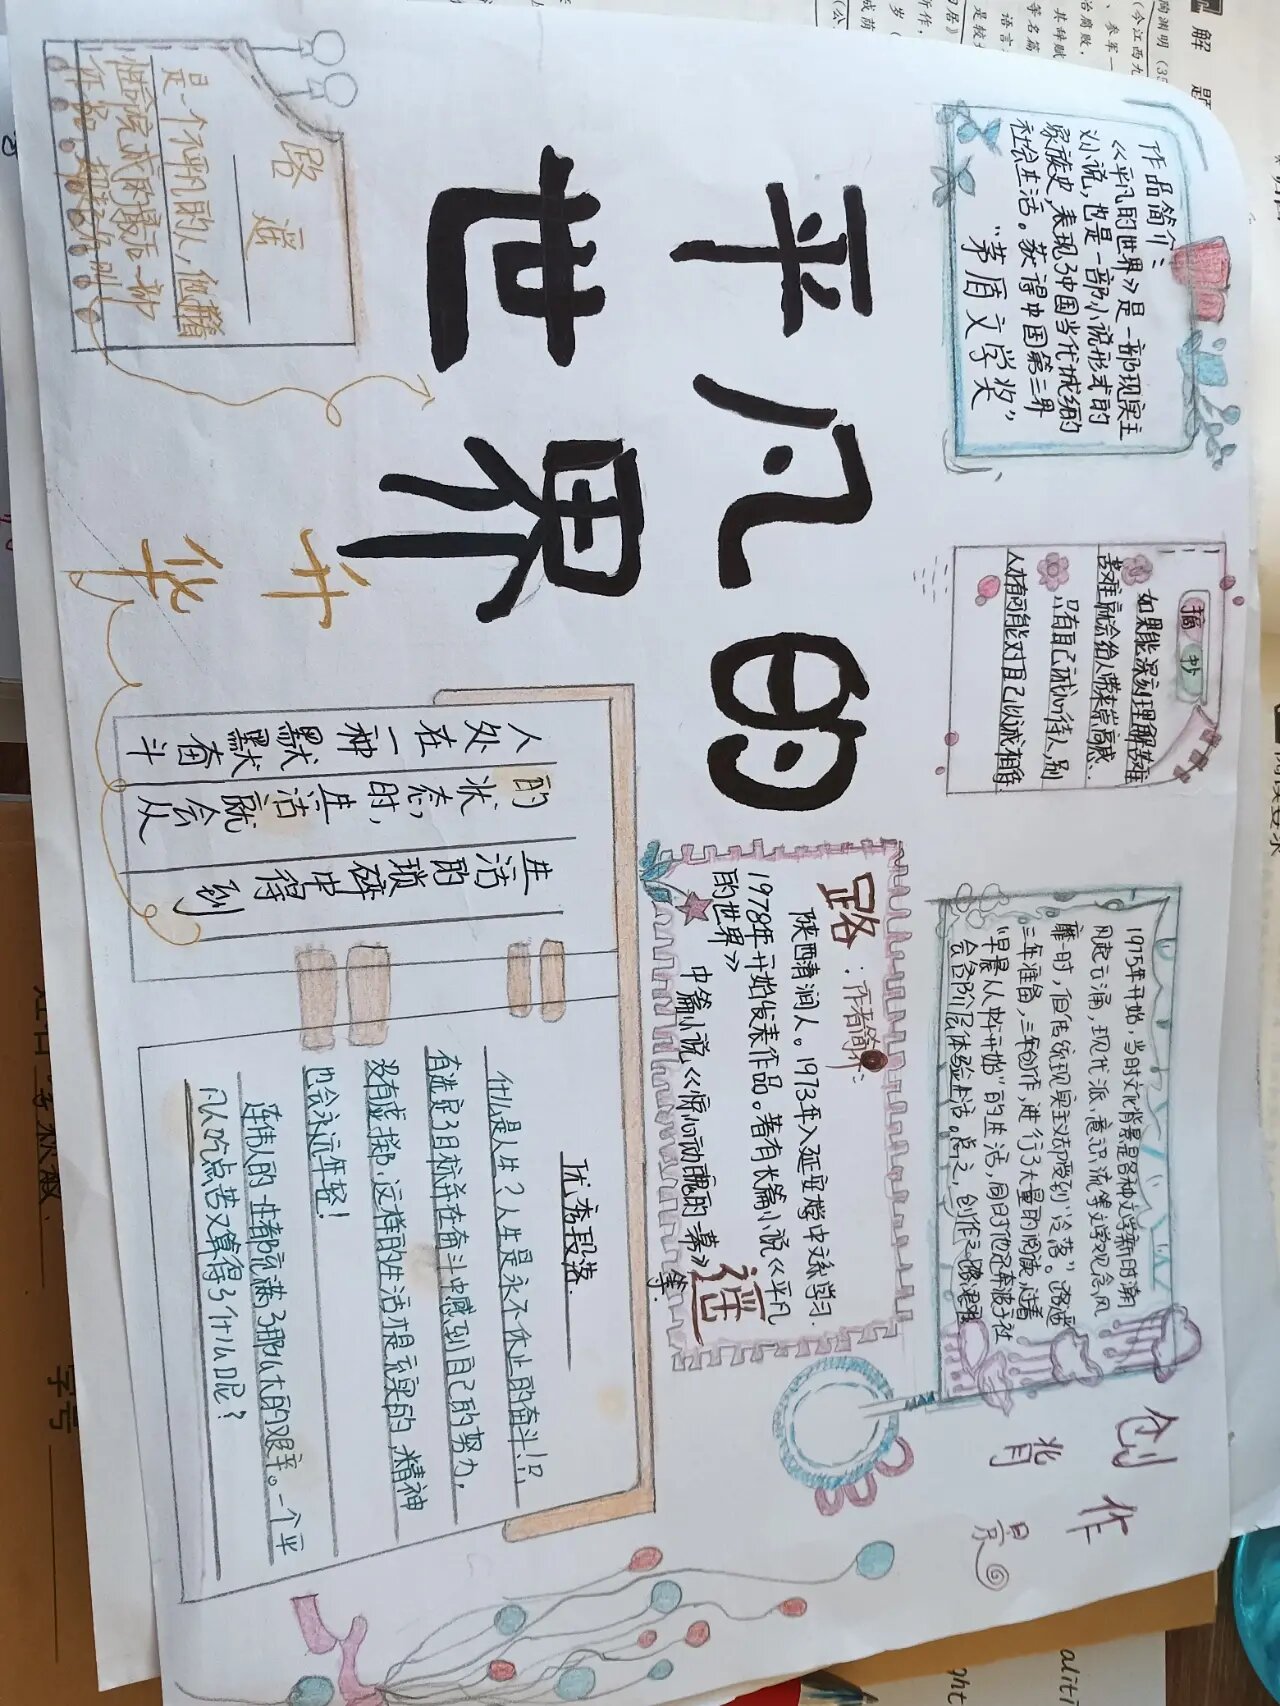 平凡的
世界
作品简介:
《平凡的世界》是一部现实主
义小说,也是一部小说形式的
家族史,表现了中国当代城乡的
社会生活。获得中国第三界
“茅盾文学奖”
摘抄
如果能深刻理解苦难
苦难就会给人带来崇高感.
只有自己诚心待人,别
人才有可能对自己以诚相待
创作
背景
1975年开始,当时文化背景是各种文学新的潮
风起云涌,现代派,意识流等文学观念风
靡一时,但传统现实主义却受到“冷落”。路遥
三年准备,三年创作,进行了大量的阅读,过着
“早晨从中午开始”的生活,同时他还奔波于社
会各阶层体验生活。总之,创作之路艰难
路遥
:作者简介:
陕西清涧人。1973年入延安大学中文系学习.
1978年开始发表作品。著有长篇小说《平凡
的世界》
中篇小说《惊心动魄的一幕》
等.
路遥
是一个不平凡的人,他
升华
人处在一种默默奋斗
的状态时,生活就会从
生活的琐碎中得到
优秀段落.
什么是人生?人生是永不休止的奋斗!只
有选定了目标并在奋斗中感到自己的努力.
没有虚掷.这样的生活才是充实的,精神
也会永远年轻!
连伟人的一生都充满了那么大的艰辛。一个平
凡人吃点苦又算得了什么呢?